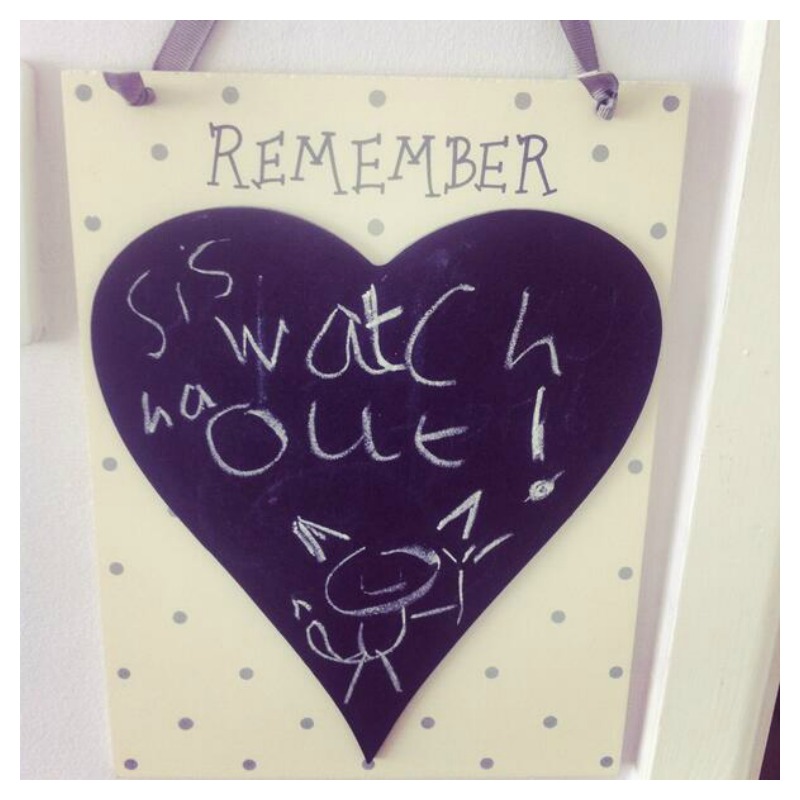 REMEMBER
sis
watch
ha
out!